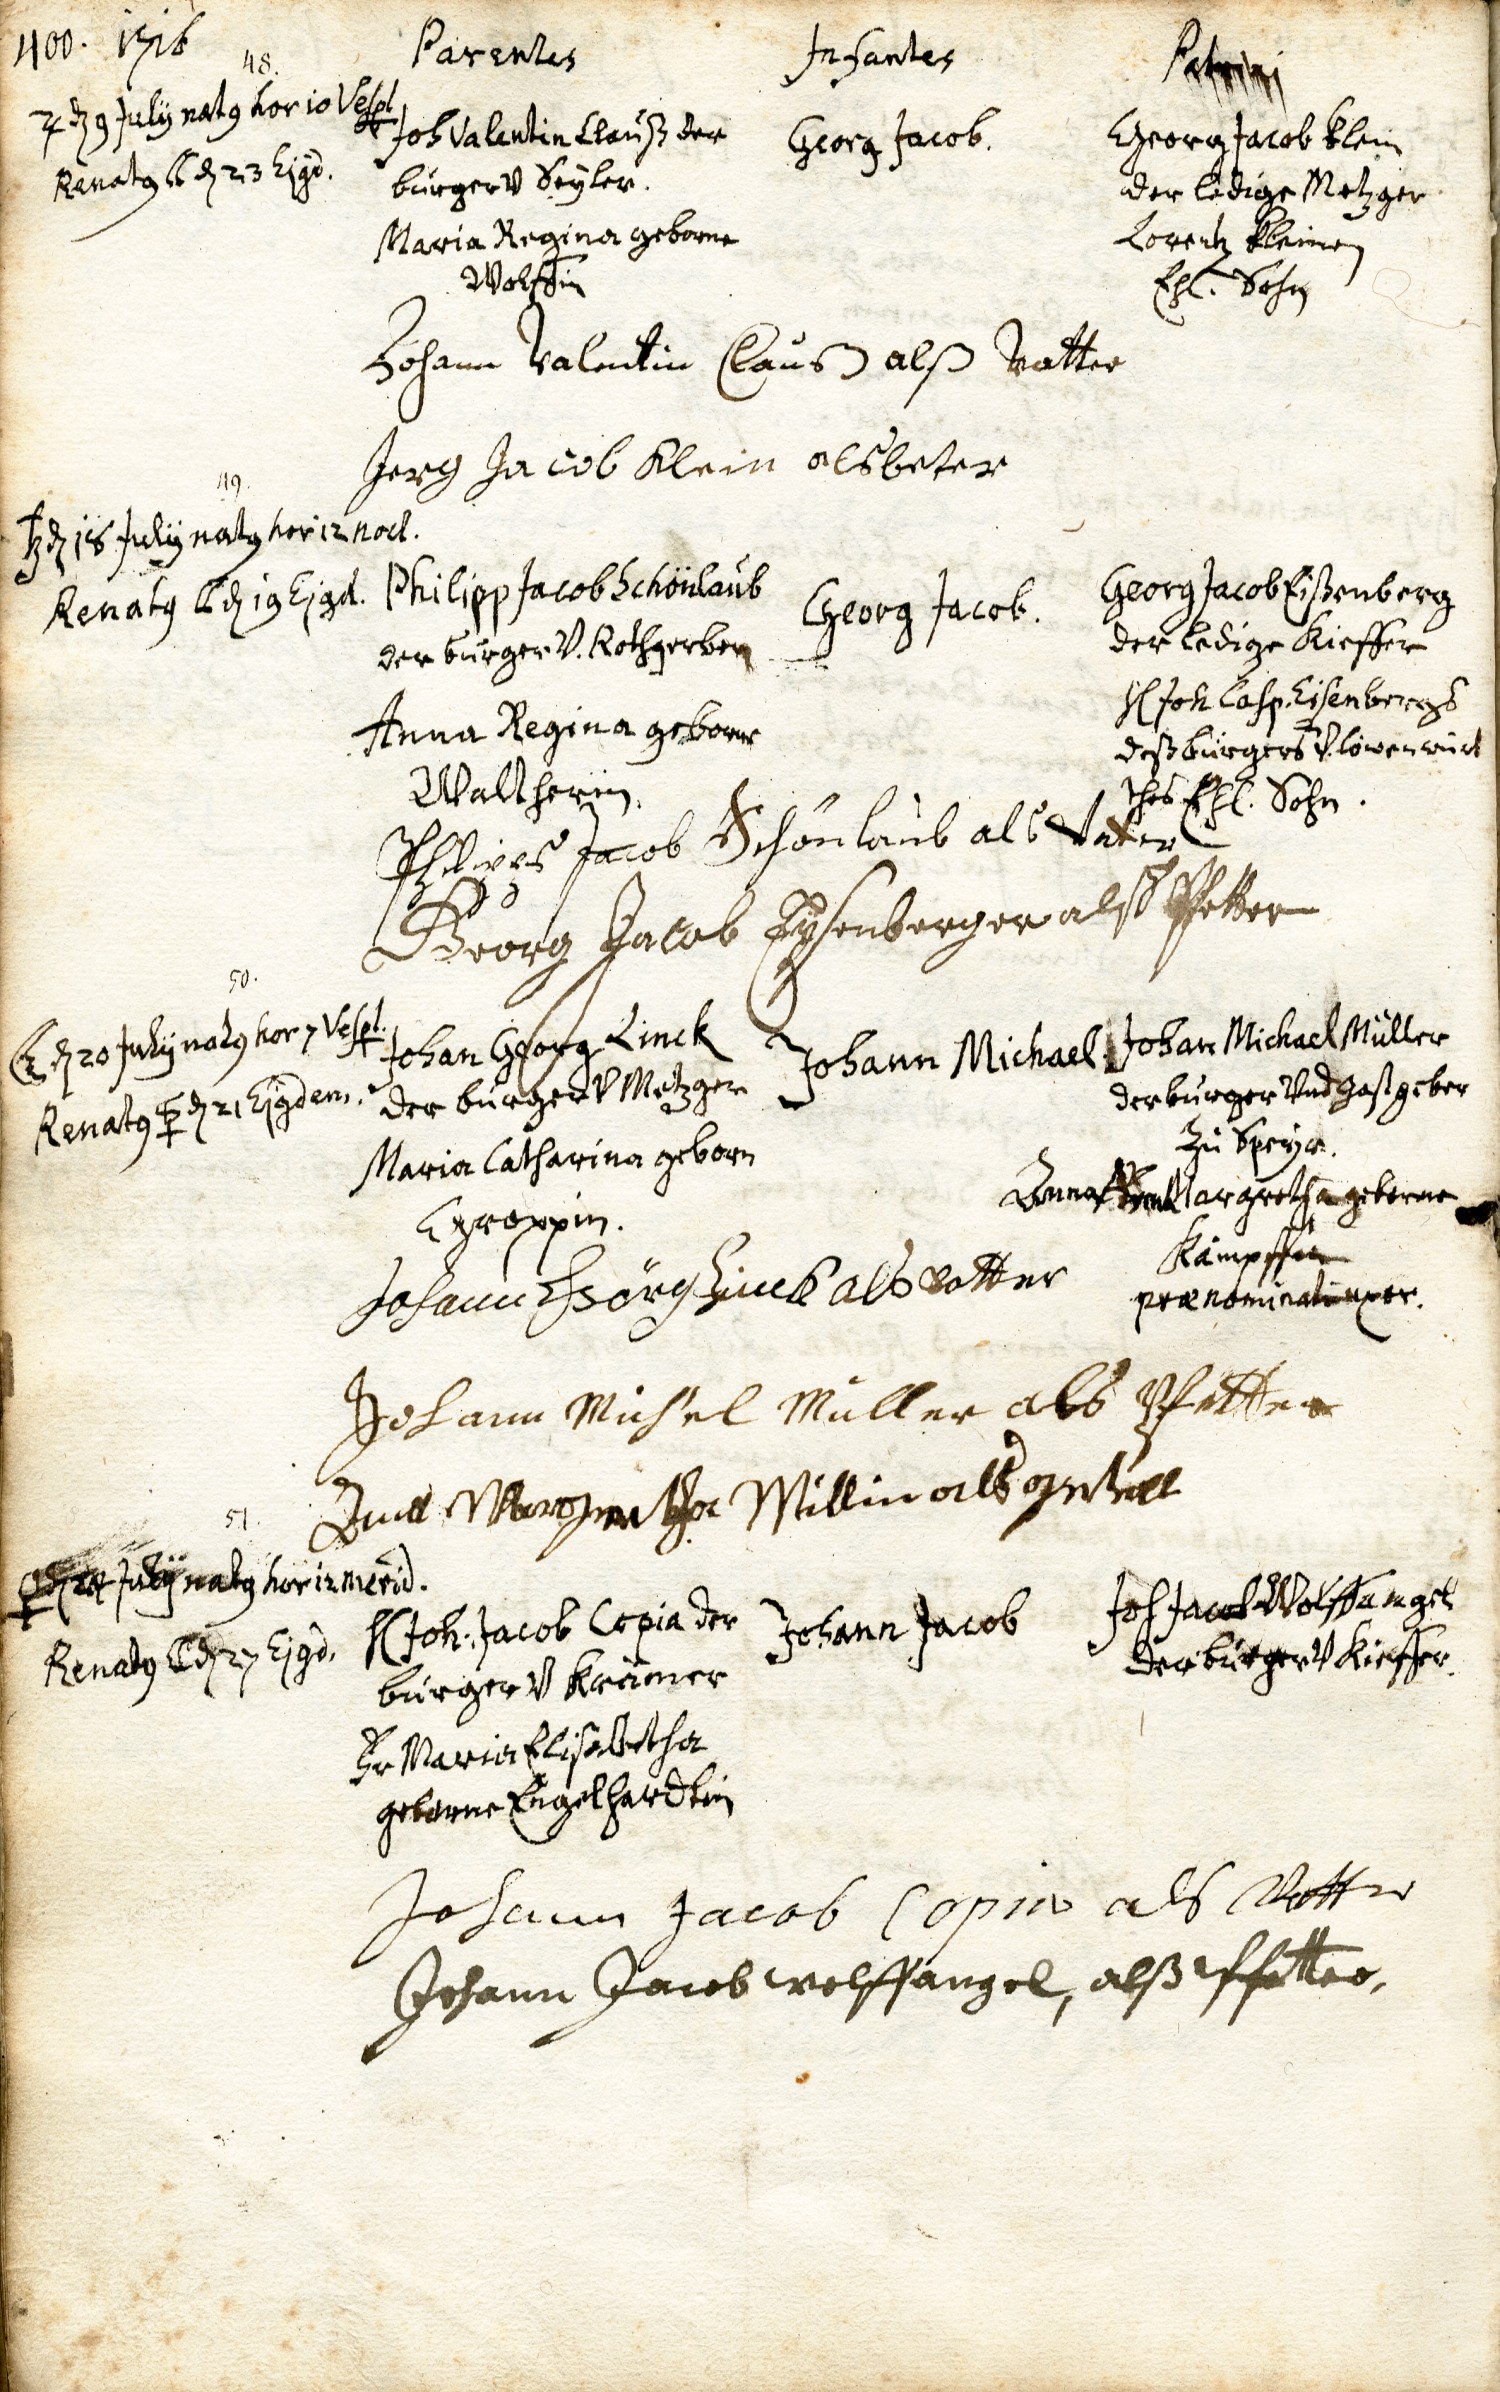 400. 1716
Parentes
Infantes
Patrini
48.
♃ d 9 July natg hor 10 Vespt
Renatg ☾ d 23 Ejgd.
Joh Valentin Clauß der
burger V Seyler.
Maria Regina geborne
Wolffin
Georg Jacob.
Georg Jacob Klein
der ledige Metzger
Lorentz Kleinen
Ehl. Sohn
Johann Valentin Clauß alß Vatter
Jerg Jacob Klein alsbeter
49.
♄ d 18 July natg hor 12 noct.
Renatg ☾ d 19 Ejgd.
Philipp Jacob Schönlaub
der burger V. Rothgerber
Anna Regina geborne
Waltherin.
Georg Jacob.
Georg Jacob Eißenberg
der ledige Kieffer
H Joh Casp. Eisenbergs
deß burgers V. löwenwirt
thes Ehl. Sohn.
Philips Jacob Schönlaub als Vater
Georg Jacob Eysenberger alß Pfetter
50.
d 20 July natg hor 7 Vespt.
Renatg d 21 Ejgdem.
Johan Georg Linck
der burger V Metzger
Maria Catharina geborn
Groppin.
Johann Michael.
Johan Michael Müller
der burger Vnd gastgeber
zu Speyr.
Anna Margretha geborne
Kämpffin
prænominati uxor.
Johann Georg Linck als Vatter
Johann Michel Müller als Pfetter
Anna Margretha Millin als gettel
51.
♀ d 24 July natg hor 12 merid.
Renatg ☾ d 27 Ejgd.
H Joh. Jacob Copia der
burger V Krämer
Fr Maria Elisabetha
geborne Engelhardtin
Johann Jacob
Joh Jacob Wolffangel
der burger V Kieffer.
Johann Jacob Copia als Vatter
Johann Jacob wolffangel, alß Pfetter,